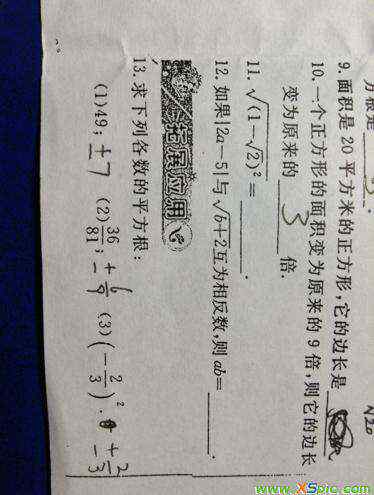 方根是
9. 面积是 20 平方米的正方形,它的边长是
10. 一个正方形的面积变为原来的 9 倍,则它的边长
变为原来的 3 倍.
11. √(1-√2)² = .
12. 如果|2a-5|与√b+2互为相反数,则 ab= .
拓展应用
13. 求下列各数的平方根:
(1)49; ±7 (2)36/81; ±6/9 (3)(-2/3)². ±2/3
www.XSpic.com